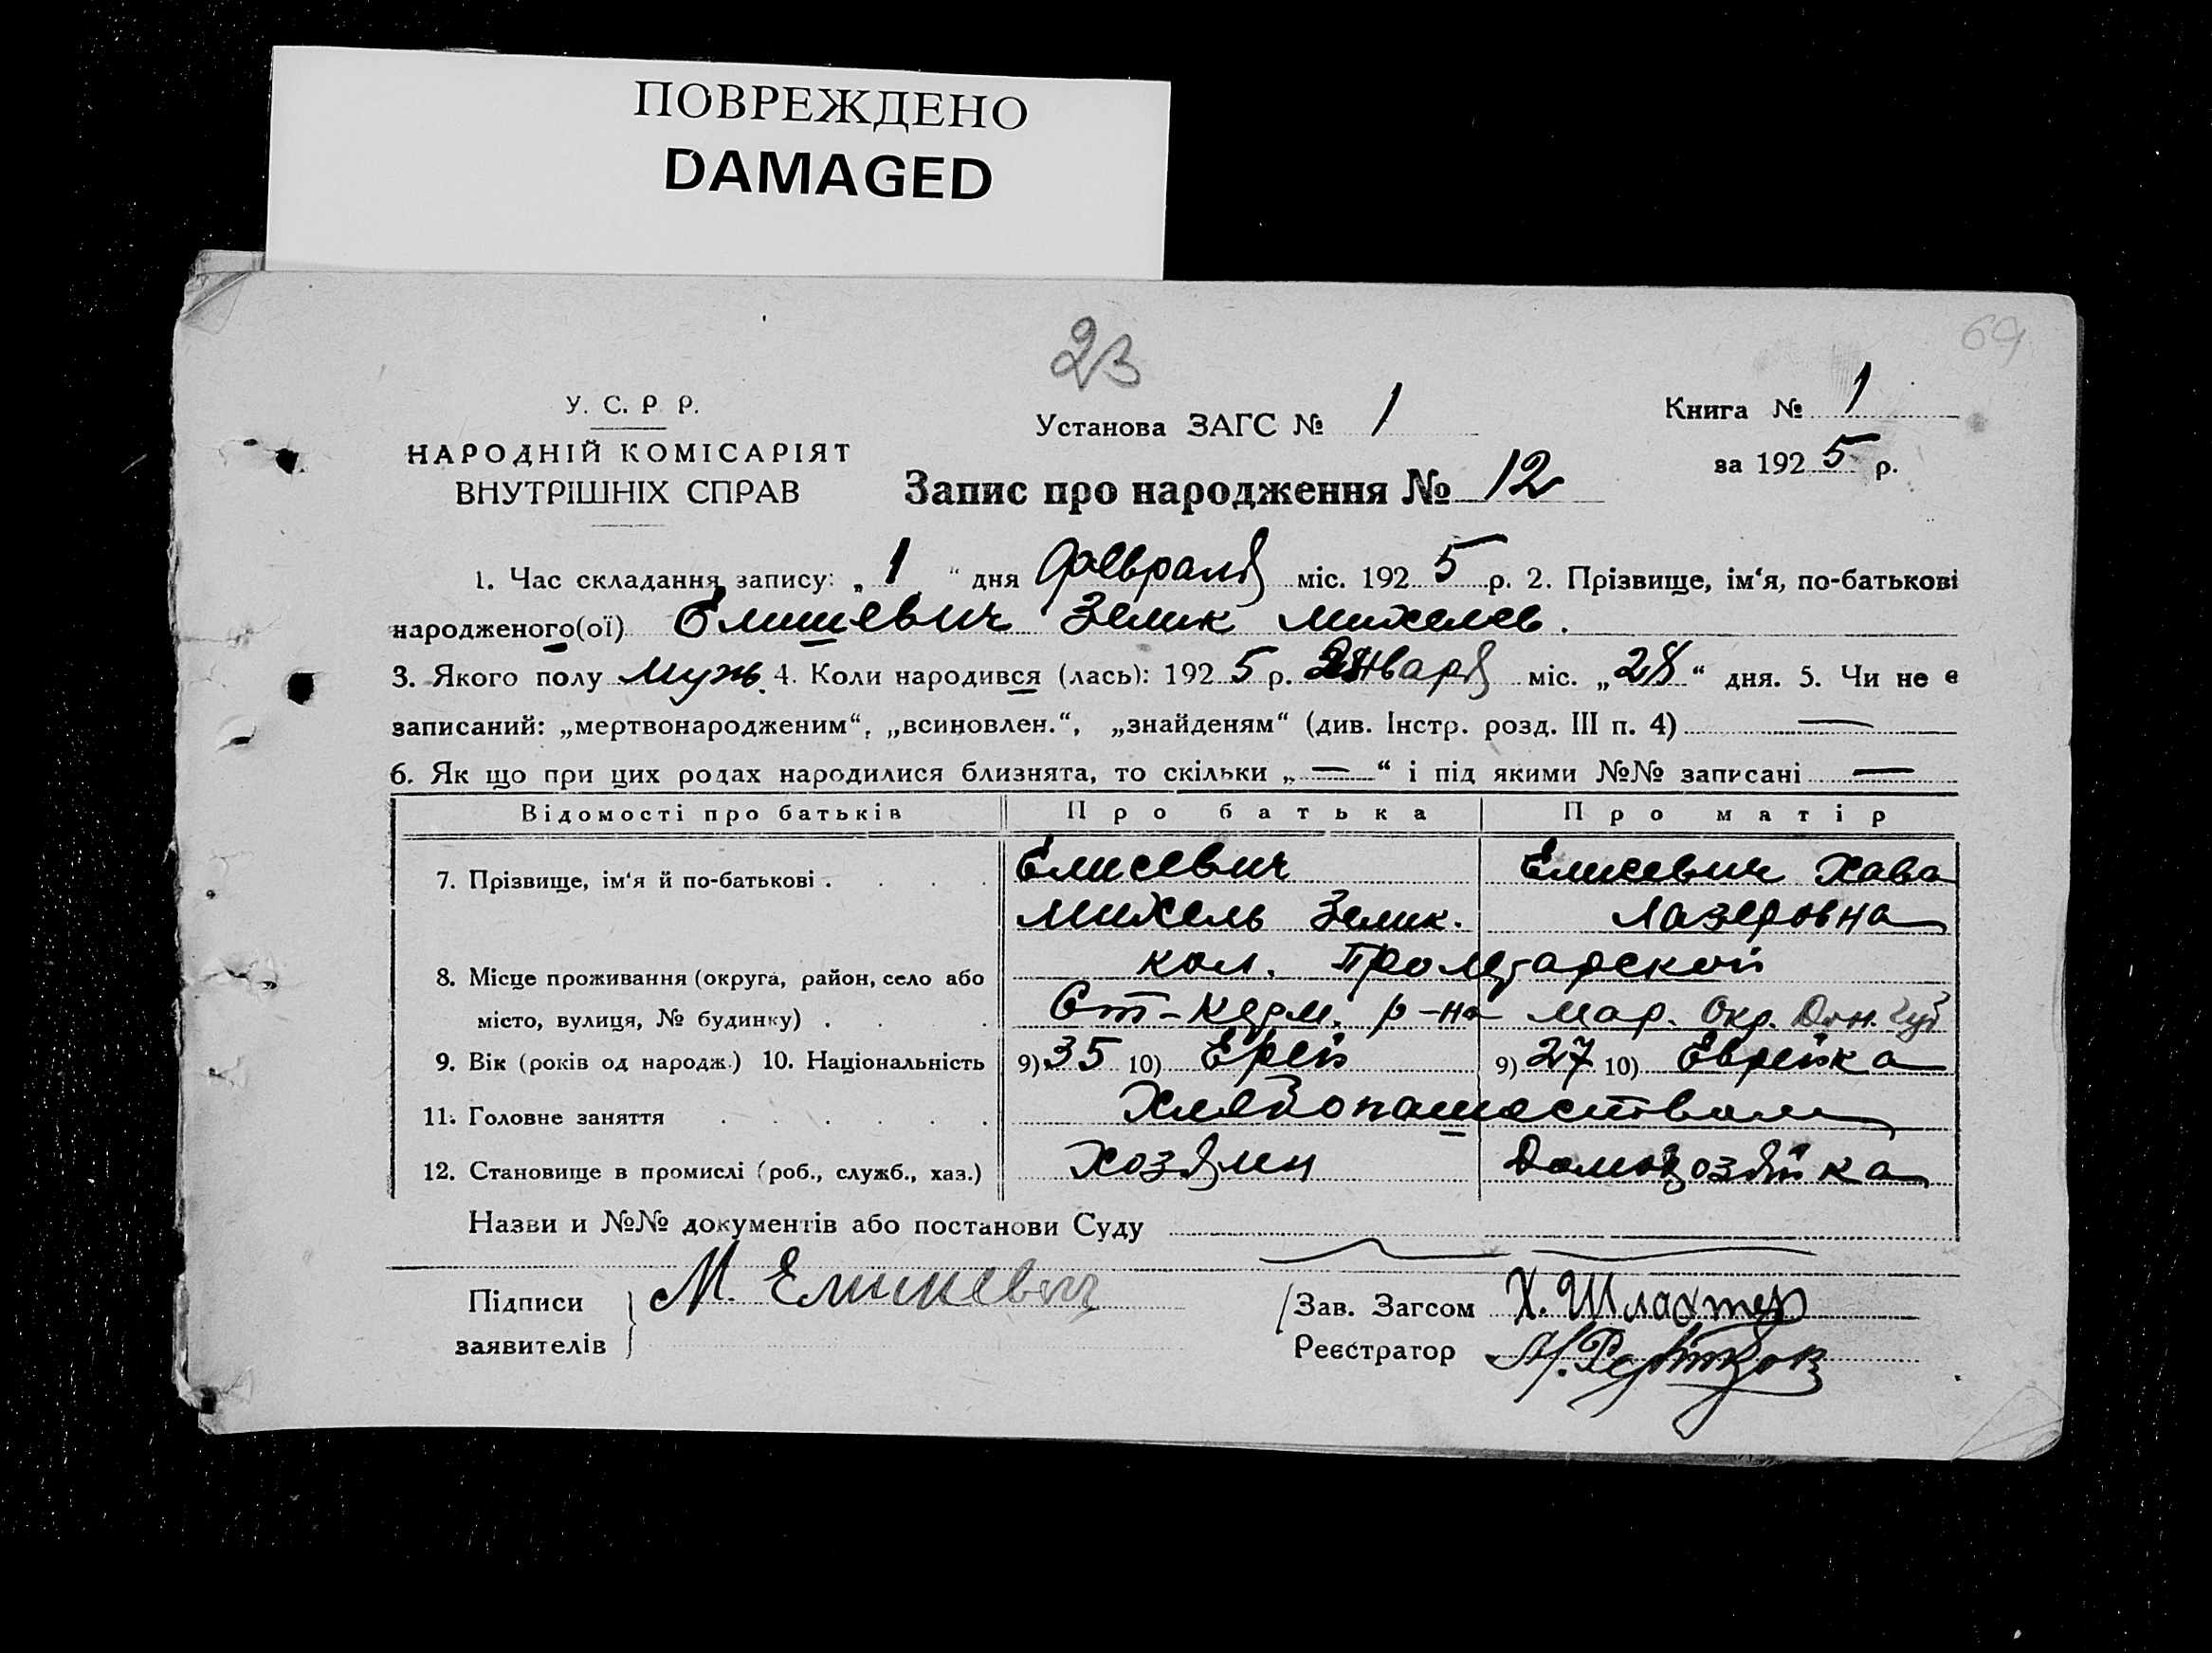 ПОВРЕЖДЕНО
DAMAGED
23
69
У. С. Р Р.
НАРОДНІЙ КОМІСАРІЯТ
ВНУТРІШНІХ СПРАВ
Установа ЗАГС № 1
Книга № 1
за 1925 р.
Запис про народження № 12
1. Час складання запису: „1“ дня февраля міс. 1925 р. 2. Прізвище, ім‘я, по-батькові
народженого(ої) Елишевич Зелик Михелев.
3. Якого полу муж. 4. Коли народився (лась): 1925 р. Января міс. „28“ дня. 5. Чи не є
записаний: „мертвонародженим“, „всиновлен.“, „знайденям“ (див. Інстр. розд. III п. 4) —
6. Як що при цих родах народилися близнята, то скільки „—“ і під якими №№ записані —
Відомості про батьків Про батька Про матір
7. Прізвище, ім‘я й по-батькові . . . . Елисевич Елисевич Хава
Михель Зелик. Лазеровна
8. Місце проживання (округа, район, село або кол. Пролетарской
місто, вулиця, № будинку) . . . Ст-Керм. р-на Мар. Окр. Дон. губ
9. Вік (років од народж.) 10. Національність 9) 35 10) Ерей 9) 27 10) Еврейка
11. Головне заняття . . . . . . Хлебопашеством
12. Становище в промислі (роб., служб., хаз.) Хозяин Домохозяйка
Назви и №№ документів або постанови Суду
Підписи заявителів М. Елишевич
Зав. Загсом Х. Шлахтер
Реєстратор